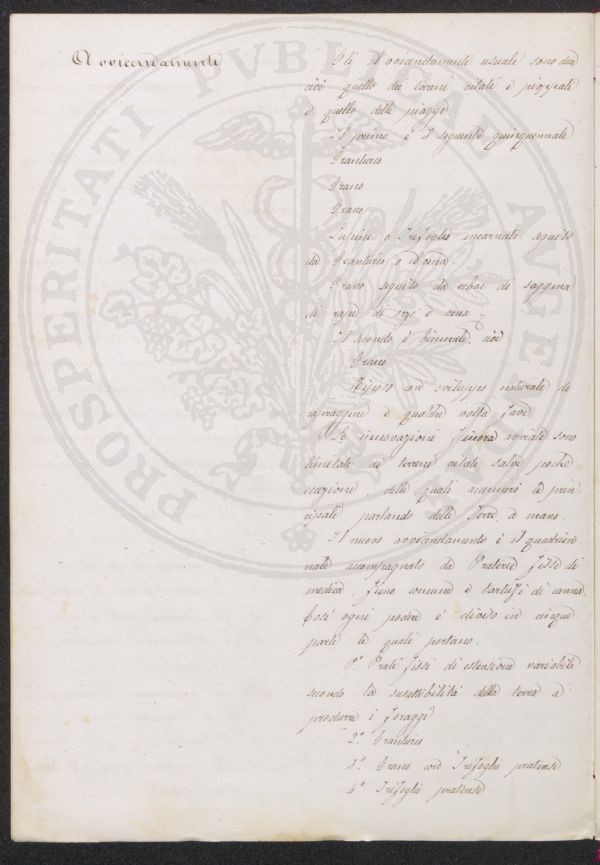 PROSPERITATI PVBLICAE AVGENDAE
Avvicendamenti
Gli Avvicendamenti usuali sono due
cioè quello dei terreni vitati e pioppati
e quello delle piagge
Il primo è il seguente quinquennale
Granturco
Grano
Grano
Lupini o Trifoglio incarnato seguito
da Granturco o avena.
Grano seguito da erbai di saggina
di rape di orzo e vena
Il secondo è biennale, cioè
Grano
Riposo con sviluppo naturale di
capraggine e qualche volta fave
Le innovazioni finora avviate sono
limitate ai terreni vitati salve poche
eccezioni delle quali accennerò le prin-
cipali parlando delle Terre a mano.
Il nuovo avvicendamento è il quadrien
nale accompagnato da Praterie fisse di
medica, fieno comune e tartufi di canna.
Così ogni podere è diviso in cinque
parti le quali portano.
1º. Prati fissi di estensione variabile
secondo la suscettibilità della terra a
produrre i foraggi
2º. Granturco
3º. Grano con Trifoglio pratense
4º. Trifoglio pratense